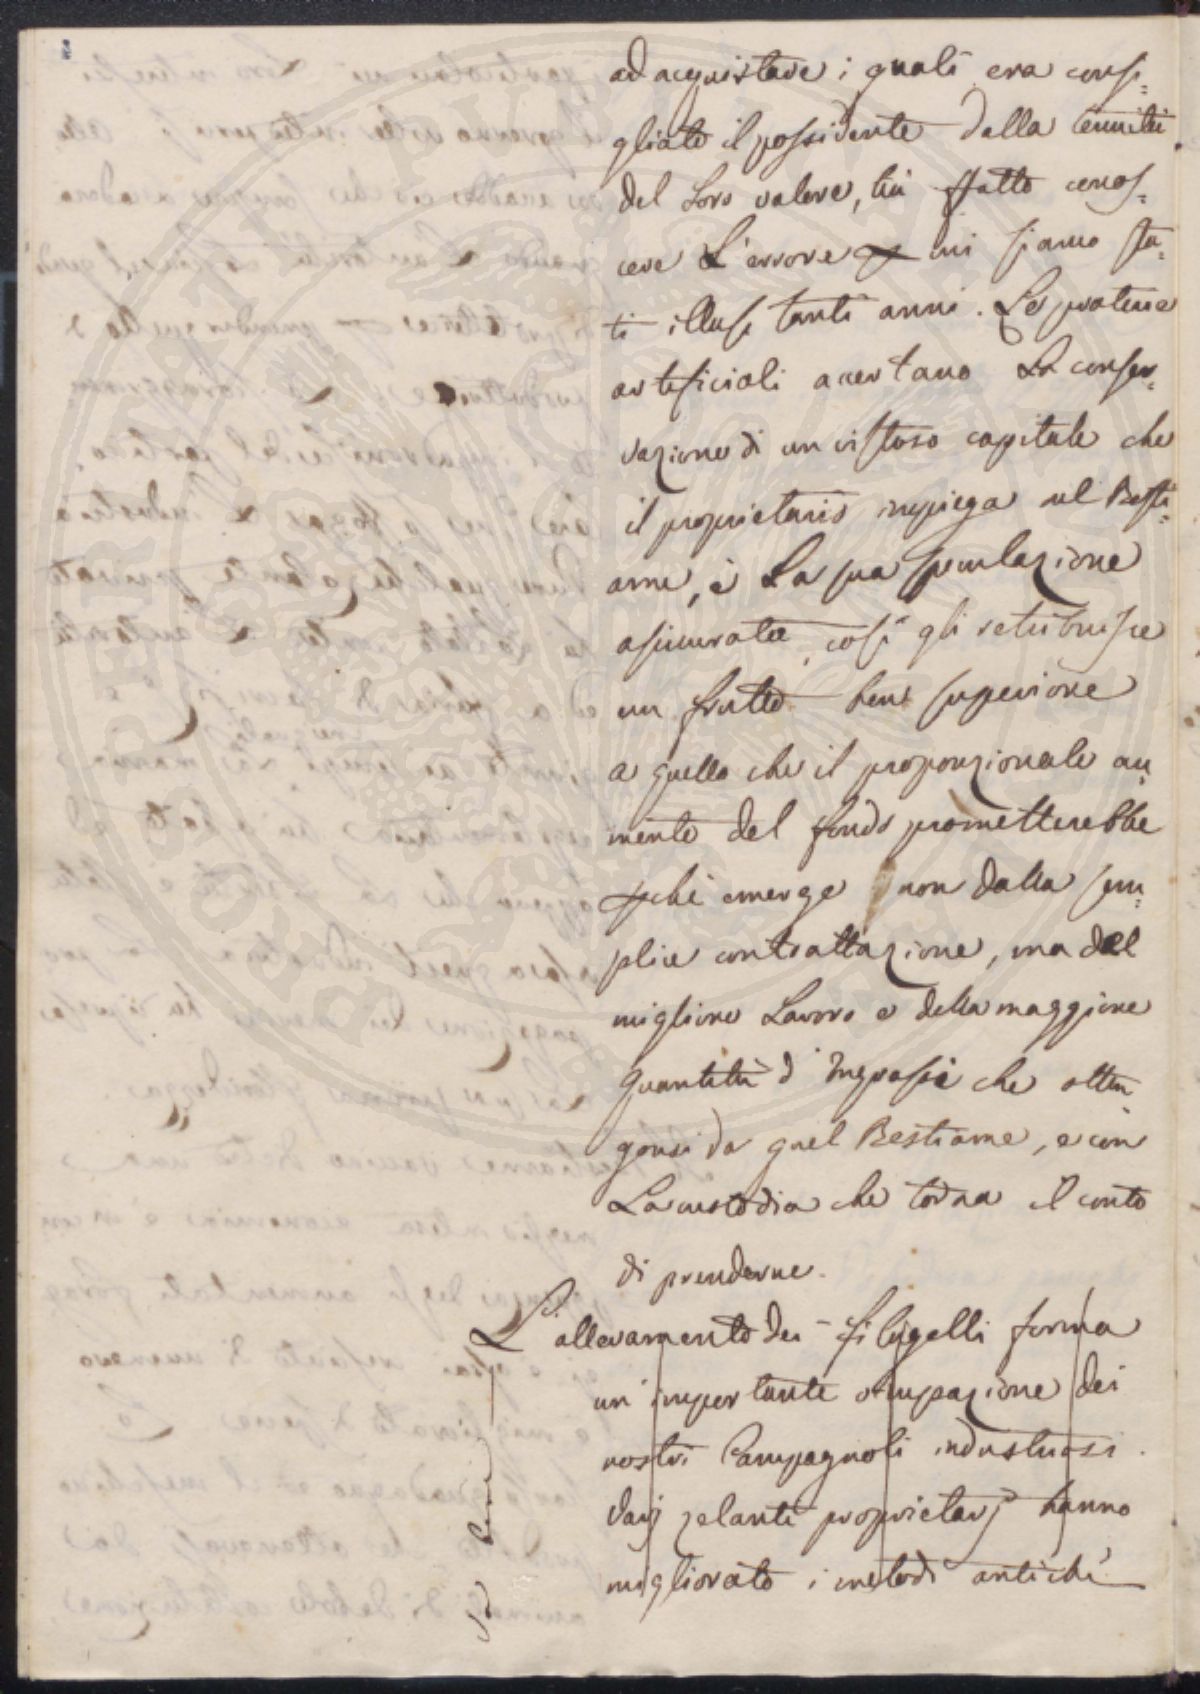 ad acquistare i quali era consi=
gliato il possidente dalla tenuità
del Loro valore, hà fatto conos=
cere L'errore in cui siamo sta=
ti illusi tanti anni. Le praterie
arteficiali accertano La conser=
vazione di un vistoso capitale che
il proprietario impiega nel Besti=
ame, è La sua speculazione
assicurata, così gli retribuisce
un frutto ben superiore
a quello che il proporzionale au
mento del fondo prometterebbe
pchè emerge non dalla sem=
plice contrattazione, ma dal
migliore Lavoro e della maggiore
quantità d'Ingrassi che otten
gonsi da quel Bestiame, e con
La custodia che torna il conto
di prenderne.
L'allevamento dei Filugelli forma
un'importante occupazione dei
nostri Campagnoli industriosi.
Varj zelanti proprietarj hanno
migliorato i metodi antichi